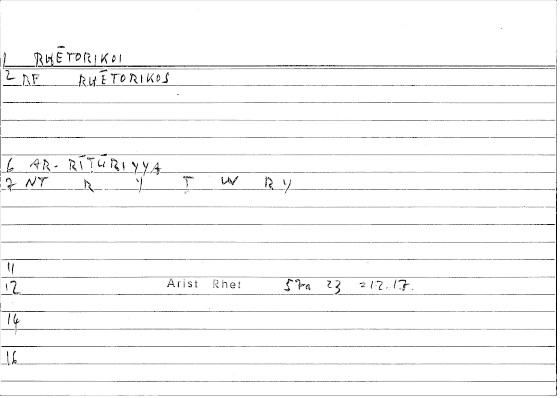 1 RHĒTORIKOI
2 RF RHĒTORIKOS
6 AR-RĪṬŪRIYYA
7 NT R Y Ṭ W R Y
11
12 Arist Rhet 57a 23 = 12.17.
14
16